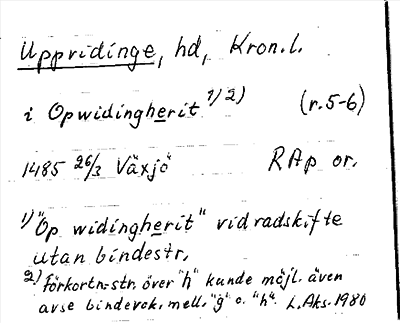 Uppvidinge, hd, Kron.l.
i Opwidingherit 1) 2) (r.5-6)
1485 26/3 Växjö RAp or.
1) "Op widingherit" vid radskifte
utan bindestr.
2) Förkortn.-str. över "h" kunde möjl. även
avse bindevok. mell. "g" o. "h". L.Aks. 1980